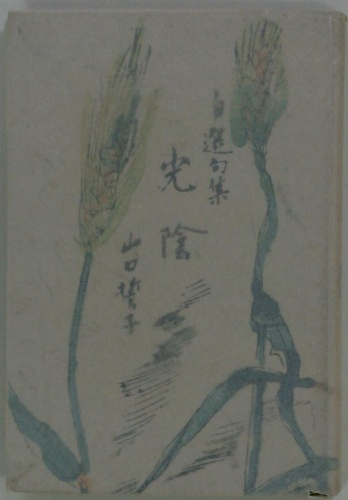 自選句集
光陰
山口誓子